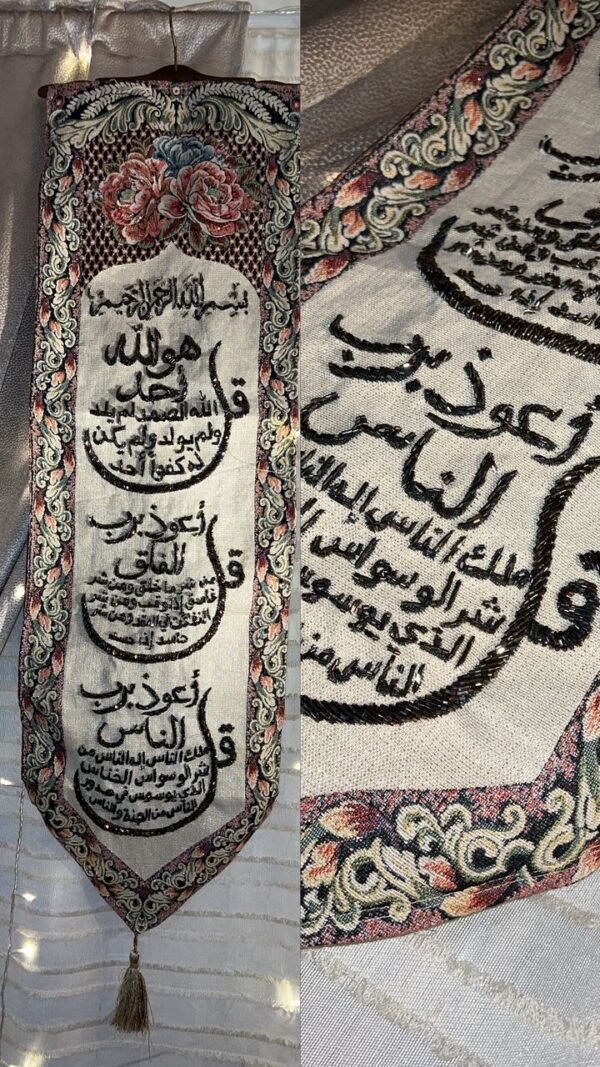 بسم الله الرحمن الرحيم
قل
هو الله
أحد
الله الصمد لم يلد
ولم يولد ولم يكن
له كفوا أحد
قل
أعوذ برب
الفلق
من شر ما خلق ومن شر
غاسق إذا وقب ومن شر
النفثت في العقد ومن شر
حاسد إذا حسد
قل
أعوذ برب
الناس
ملك الناس إله الناس من
شر الوسواس الخناس
الذي يوسوس في صدور
الناس من الجنة والناس
أعوذ برب
الناس
ملك الناس إله
شر الوسواس
الذي يوسوس
الناس من